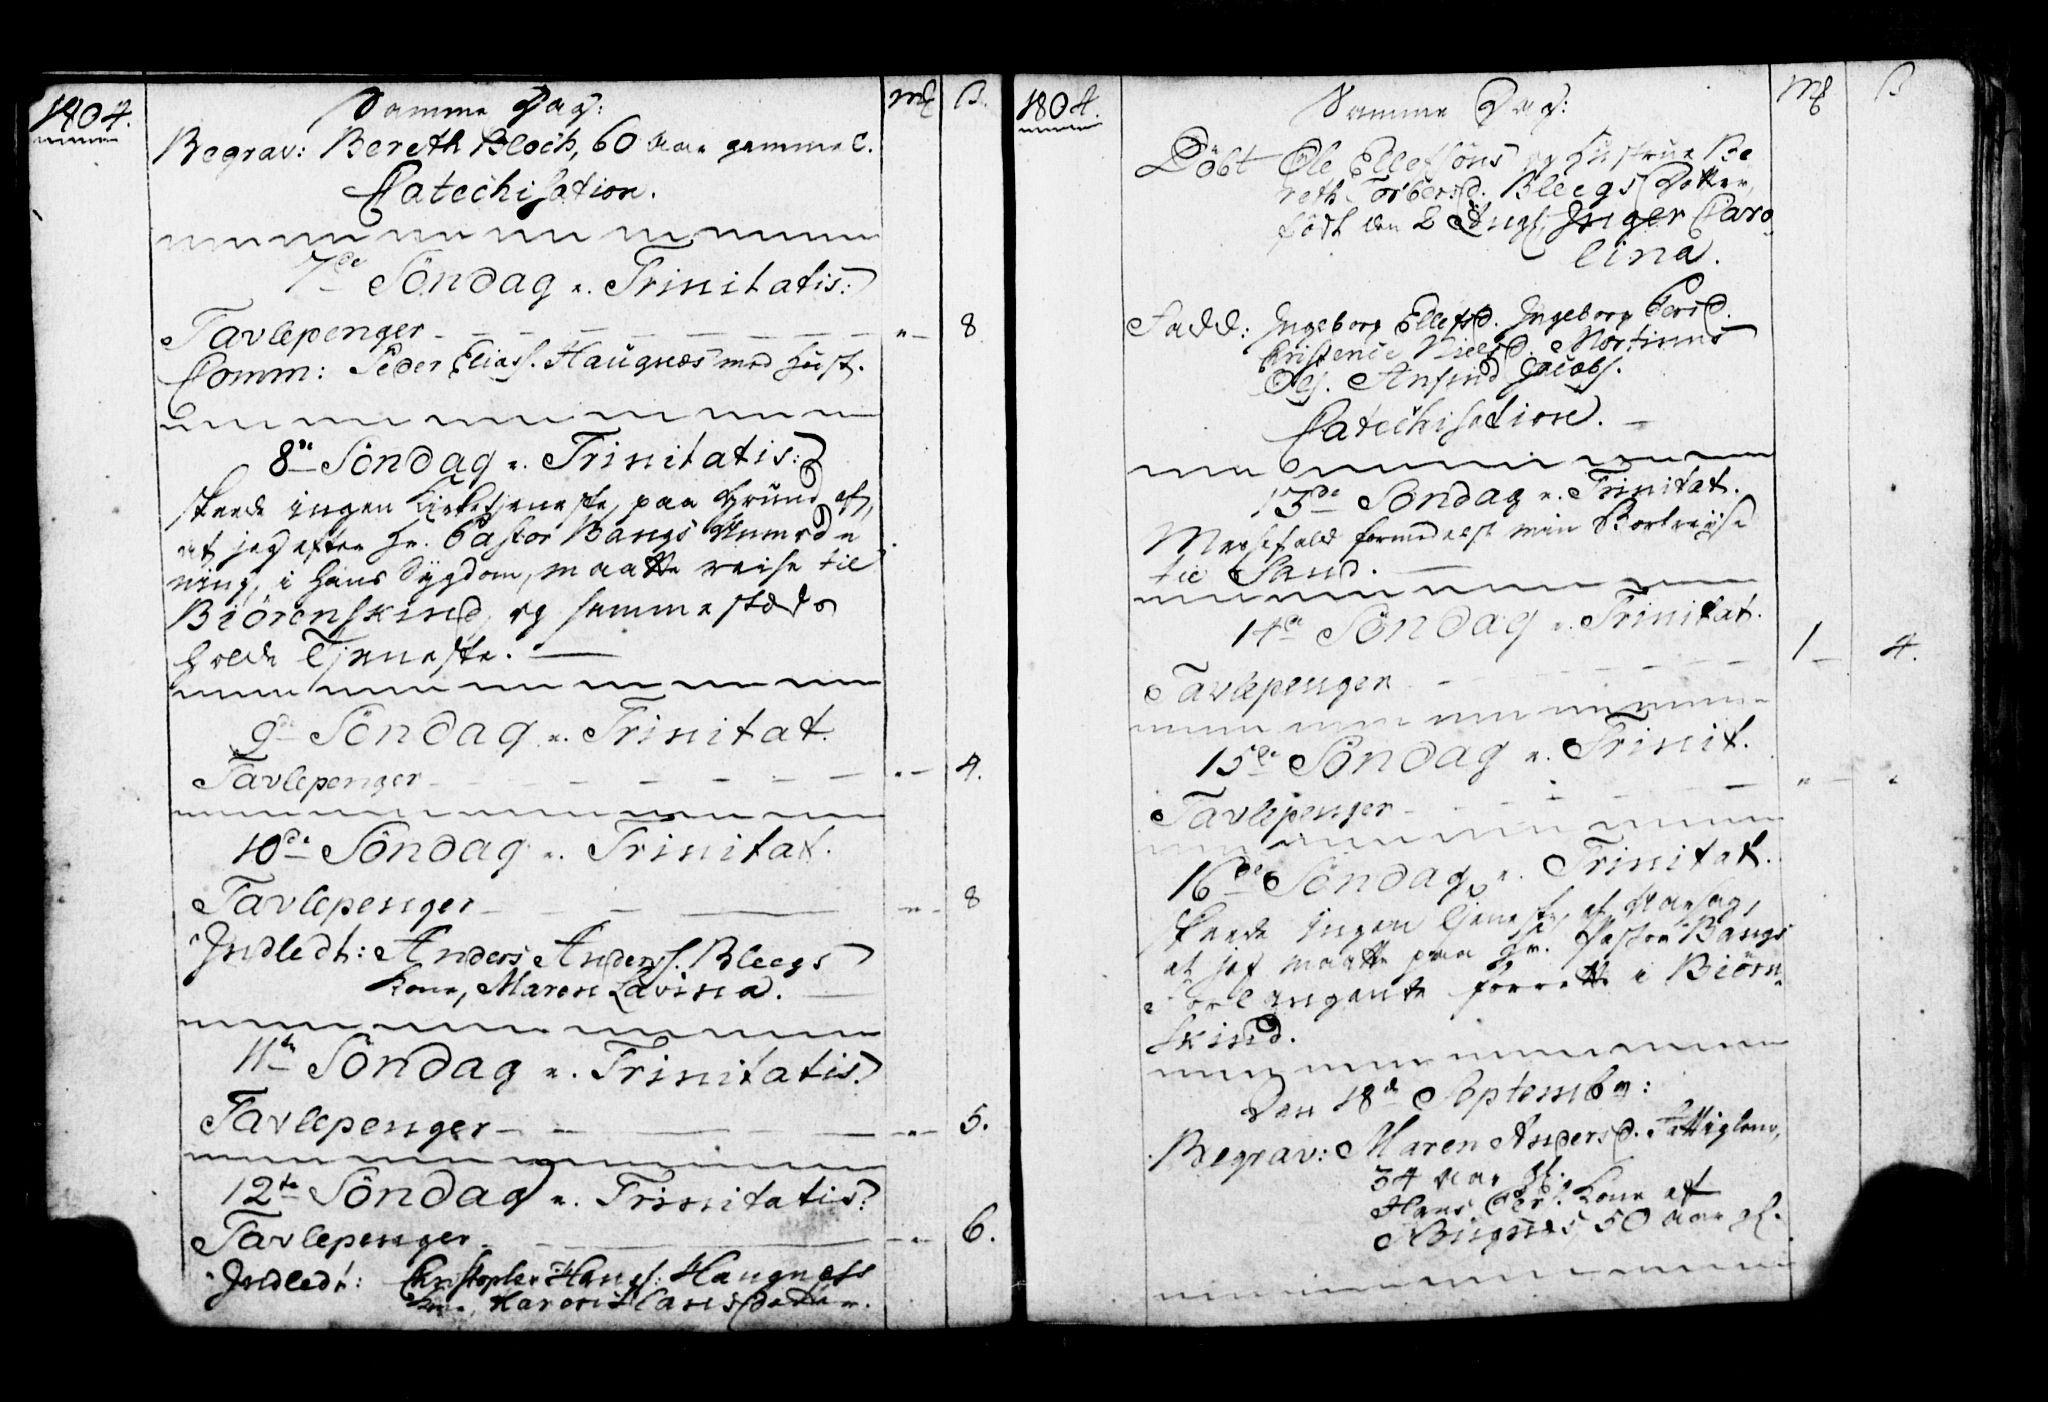 1804.
Mk ß.
Samme Dag:
Begrav: Bereth Bloch, 60 Aar gammel.
Catechisation.
7de Söndag e. Trinitatis:
Tavlepenger - " - 8
Comm: Peder Eliass. Haugnæs med Hust.
8de Söndag e. Trinitatis:
skeede ingen Kirketjeneste, paa Grund af,
at jeg efter Hr. Pastor Bangs Anmod-
ning, i hans Sygdom, maatte reise til
Biörenskind, og sammestæds
holde Tjeneste.
9de Söndag e. Trinitat.
Tavlepenger - " - 4.
10de Söndag e. Trinitat.
Tavlepenger - " - 8
Indledt: Anders Anders. Bleegs
Kone, Maren Lavina.
11te Söndag e. Trinitatis:
Tavlepenger - " - 5.
12te Söndag e. Trinitatis:
Tavlepenger - " - 6.
Indledt: Christopher Hans. Haugness
Kone, Maren
1804.
Mk ß
Samme Dag:
Döbt Ole Ellefsöns og Hustrue Be
reth Torbersd. Bleegs Datter,
födt den 2 Aug. Inger Caro-
lina.
Fadd: Ingeborg Ellefsd. Ingeborg Persd.
Christence Nielsd. Mortinus
Ols. Ansind Jacobs.
Catechisation.
13de Söndag e. Trinitat.
Messefald formedelst min Bortreise
til Sand.
14de Söndag e. Trinitat.
Tavlepenger - 1 - 4.
15de Söndag e. Trinit.
Tavlepenger - " - "
16de Söndag e. Trinitat.
Skeede ingen Tjeneste, af Aarsag,
at jeg maatte paa Hr. Pastor Bangs
Forlangende forrette i Biörn-
skind.
Den 18de Septembr:
Begrav: Maren Andersd. Fattiglem,
34 Aar gl.
Hans Pers. Kone af
50 Aar gl.